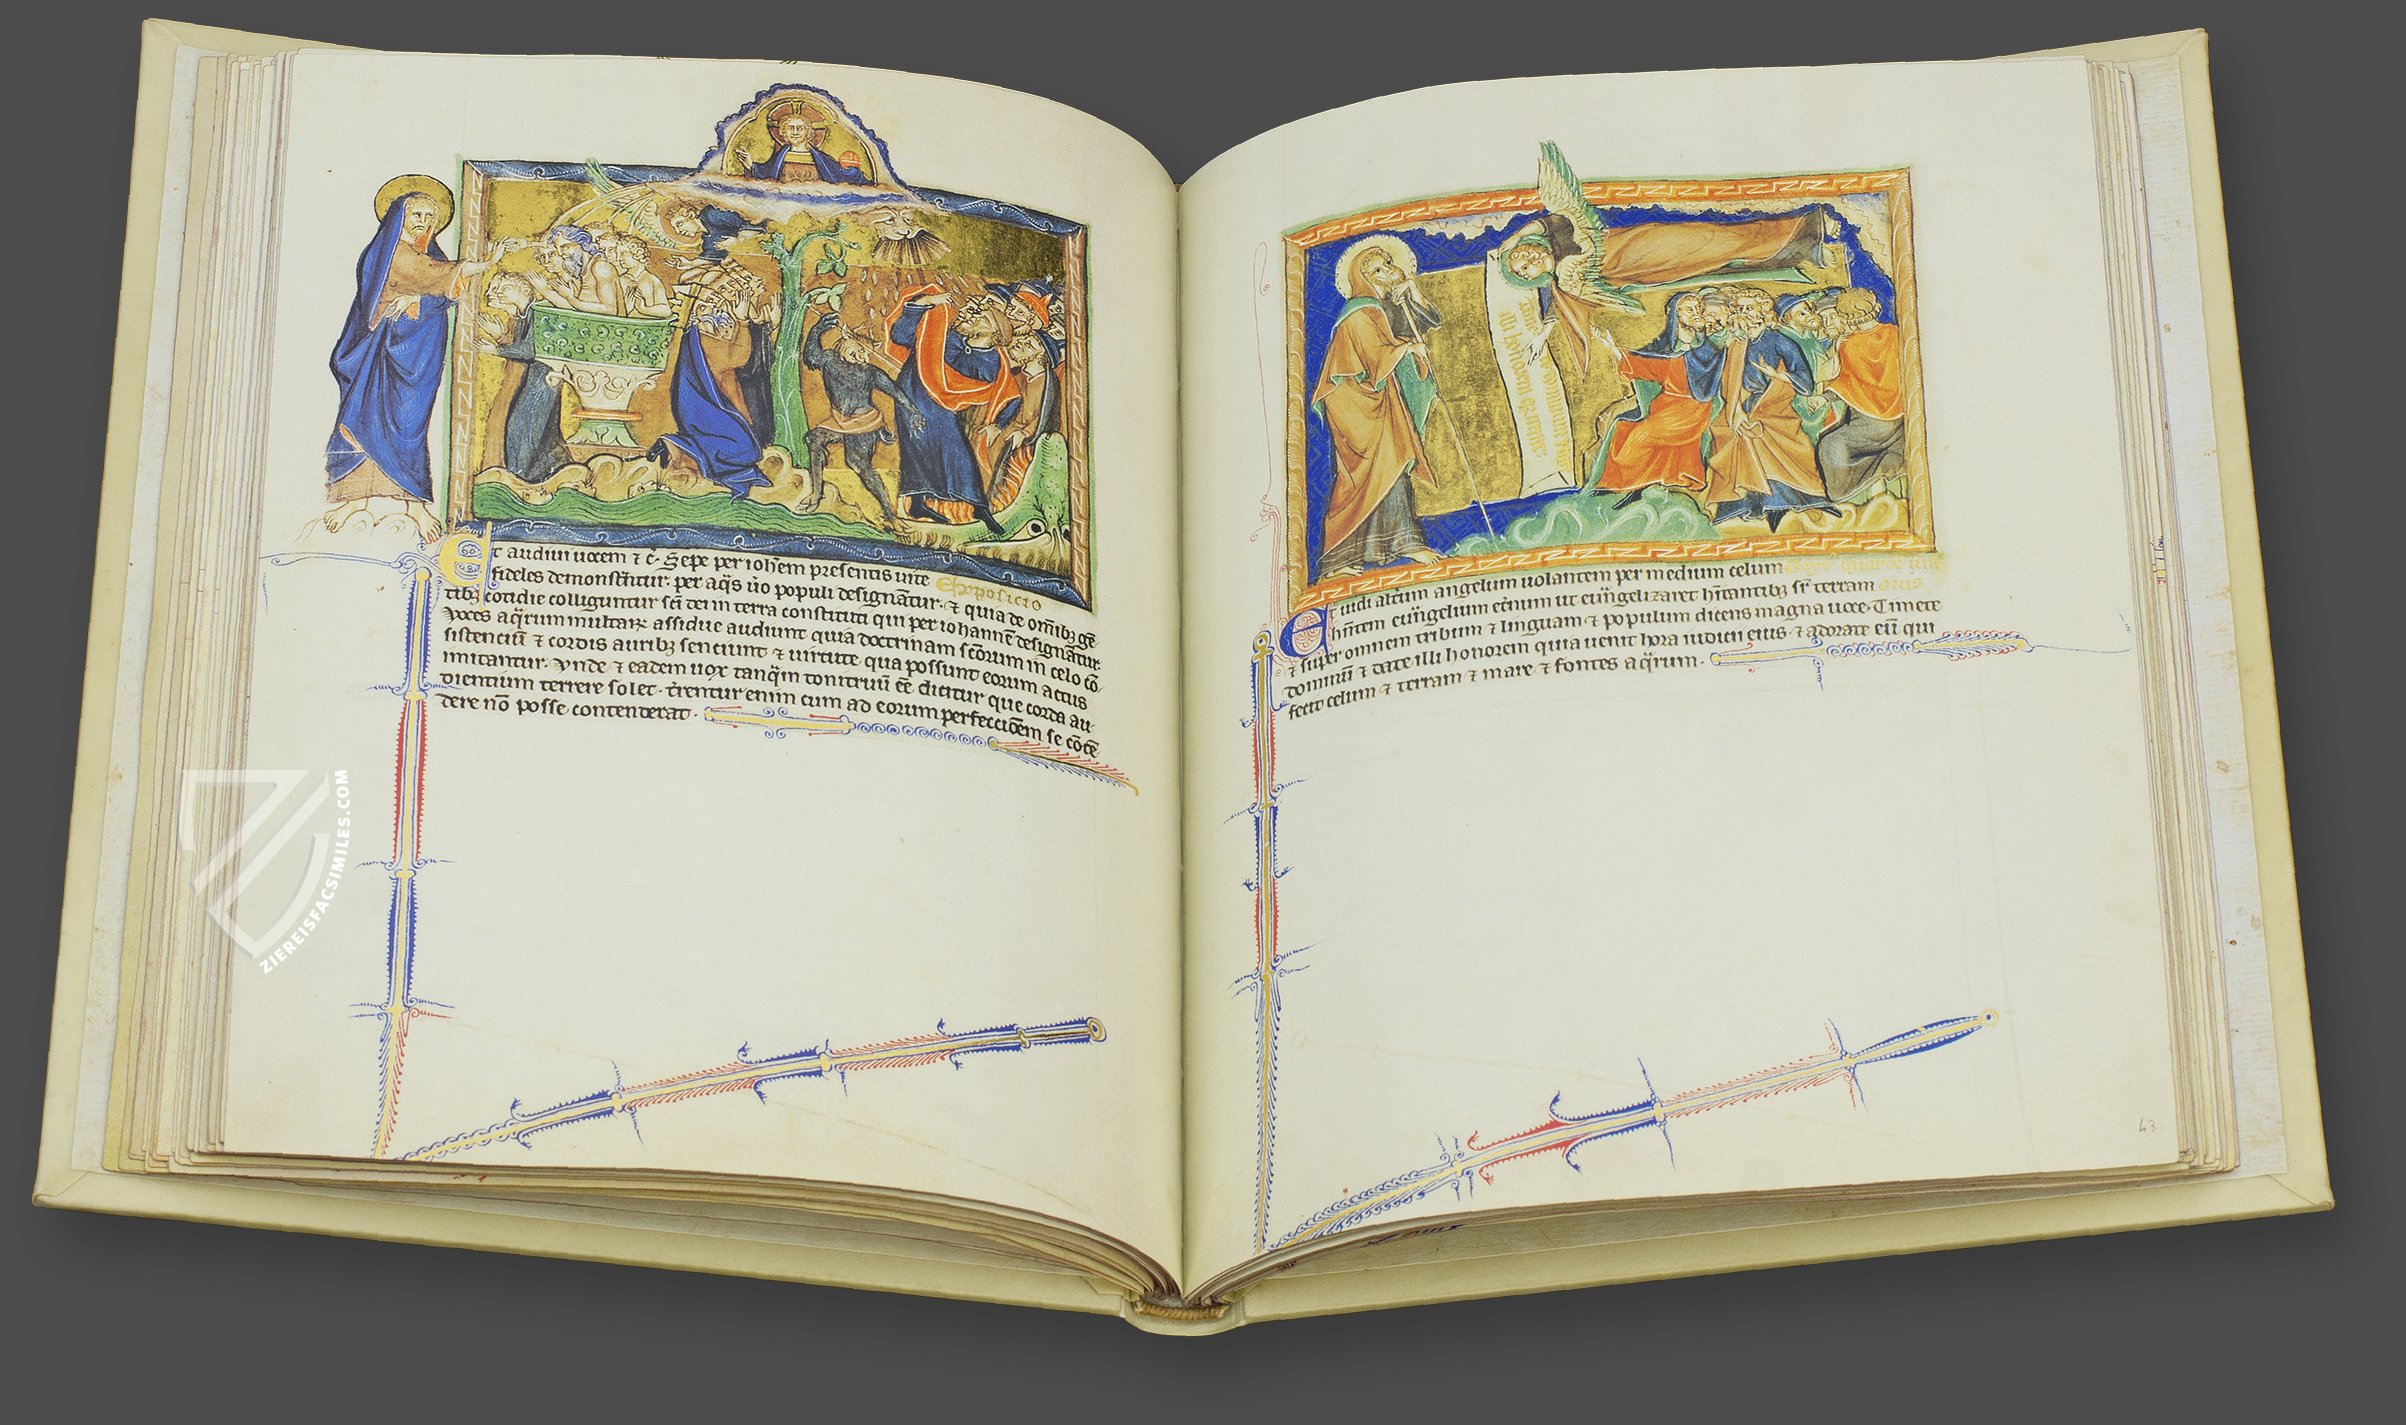 Et audiui uocem ⁊ c̄. Sepe per ioh̄em presentis uite
fideles demonstrᷓntur. per aq̄s u̅o populi designāt̄ur. ⁊ quia de om̄ibꝫ gē
Exposicio
tibꝫ cotidie colliguntur sc̄i dei in terra constituti qui per iohannē designāt̄ur.
Voces aq̄rum multarꝝ assidue audiunt quia doctrinam sc̄orum in celo cō
sistenciū ⁊ cordis auribꝫ senciunt ⁊ uirtute qua possunt eorum actus
imitantur. Vnde ⁊ eadem uox tanq̄m tonitruū ēē dicitur que corda au-
dientium terrere solet. t̄rentur enim cum ad eorum perfeccionem se cōtē
dere nō posse contenderat.
Et uidi alt̄um angelum uolantem per medium celum
h̄ntem eūngelium et̄num ut eūngelizaret h̄itantibꝫ sr̄ terram
⁊ super omnem tribum ⁊ linguam ⁊ populum dicens magna uoce. Timete
dominū ⁊ date illi honorem quia uenit hora iudicii eius. ⁊ adorate eū qui
fecit celum ⁊ terram ⁊ mare ⁊ fontes aq̄rum.
63
ZIEREISFACSIMILES.COM